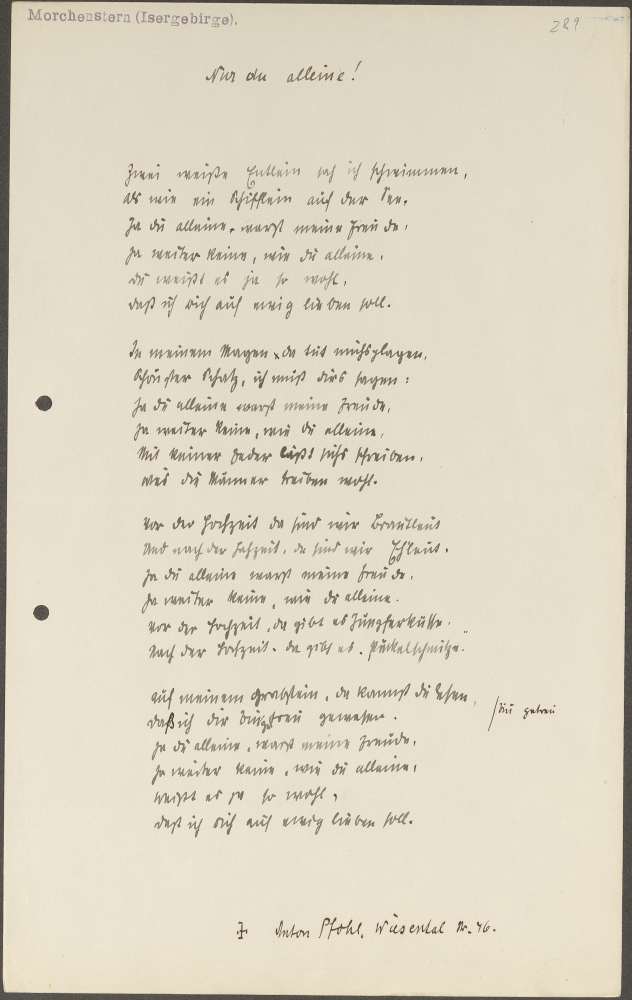 Morchenstern (Isergebirge).
289
Nur du alleine!
Zwei weiße Entlein sah ich schwimmen,
als wie ein Schifflein auf der See.
Ja du alleine, warst meine Freude,
Ja weiter keine, wie du alleine,
du weißt es ja so wohl,
daß ich dich auf ewig lieben soll.
In meinem Magen da tut michs plagen,
Schönster Schatz, ich muß dirs sagen:
Ja du alleine warst meine Freude,
Ja weiter keine, wie du alleine,
Mit keiner Feder läßt sichs schreiben,
was die Männer treiben wohl.
Vor der Hochzeit da sind wir Brautleut
Und nach der Hochzeit, da sind wir Ehleut.
Ja du alleine warst meine Freude,
Ja weiter keine, wie du alleine.
Vor der Hochzeit, da gibt es Jungferküsse.
Nach der Hochzeit, da gibt es
Auf meinem Grabstein, da kannst du lesen,
daß ich dir treu gewesen.
/ getreu
Ja du alleine, warst meine Freude,
Ja weiter keine, wie du alleine,
weißt es ja so wohl,
daß ich dich auf ewig lieben soll.
Anton Pfohl, Wiesental Nr. 46.